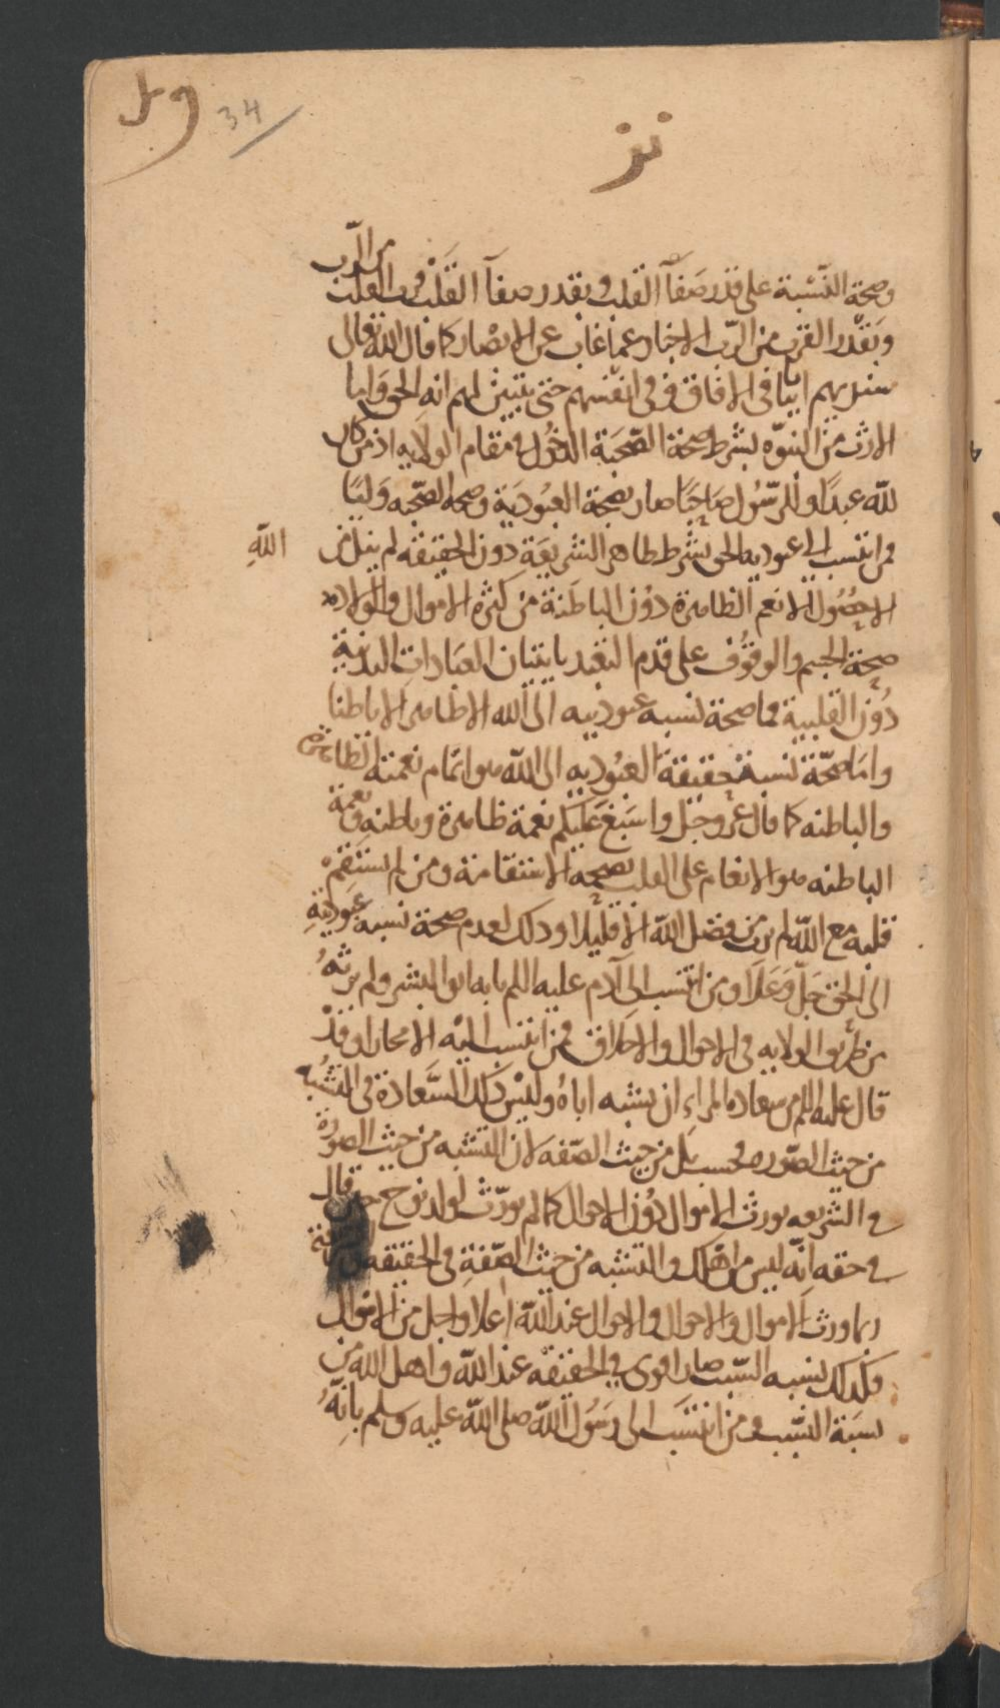 34
وصحة النسبة على قدر صفآ القلب وبقدر صفآ القلب قرب القلب من الرب
وبقدر القرب من الرب الاخبار عما غاب عن الابصار كما قال الله تعالى
سنريهم اياتنا فى الافاق وفى انفسهم حتى يتبين لهم انه الحق واما
الارث من النبوه بشرط صحة الصحبة الدخول فى مقام الولايه اذ من كان
لله عبدًا وللرسول صاحبًا صار بصحة العبودية وصحه الصحبه وليًا
فمن انتسب الى عبوديه الحق بشرط ظاهر الشريعة دون الحقيقه لم ينل من الله
الا حصول الانعم الظاهرة دون الباطنة من كثرة الاموال والاولاد
صحة الجسم والوقوف على قدم التعبد باتيان العبادات البدنية
دون القلبية فما صحة نسبه عبوديته الى الله الا ظاهرا لا باطنا
واما صحة نسبة حقيقة العبوديه الى الله هو اتمام نعمته الظاهرة
والباطنه كما قال عز وجل واسبغ عليكم نعمة ظاهرة وباطنه ونعمة
الباطنه هو الانعام على القلب بصحه الاستقامة ومن لم يستقم
قلبه مع الله لم يرث من فضل الله الا قليلا وذلك لعدم صحة نسبه عبوديته
الى الحق جل وعلا ومن انتسب الى آدم عليه السلم بابه ابو البشر ولم يرثه
من طريق الولايه فى الاحوال والاخلاق فمن انتسب اليه الا مجازا وقد
قال عليه السلم من سعاده المراء ان يشبه اباه وليس ذلك السعادة فى التشبه
من حيث الصوره فحسب بل من حيث الصفه لان التشبه من حيث الصورة
فى الشريعه يورث الاموال دون الاحوال كما لم يورث لولد نوح حين قال
فى حقه انه ليس من اهلك والتشبه من حيث الصفة فى الحقيقه
ربما ورث الاموال والاحوال والاحوال عند الله اعلا واجل من الاموال
فكذلك نسبه السبب صار اقوى فى الحقيقه عند الله واهل الله من
نسبة النسب ومن انتسب الى رسول الله صلى الله عليه وسلم بانه